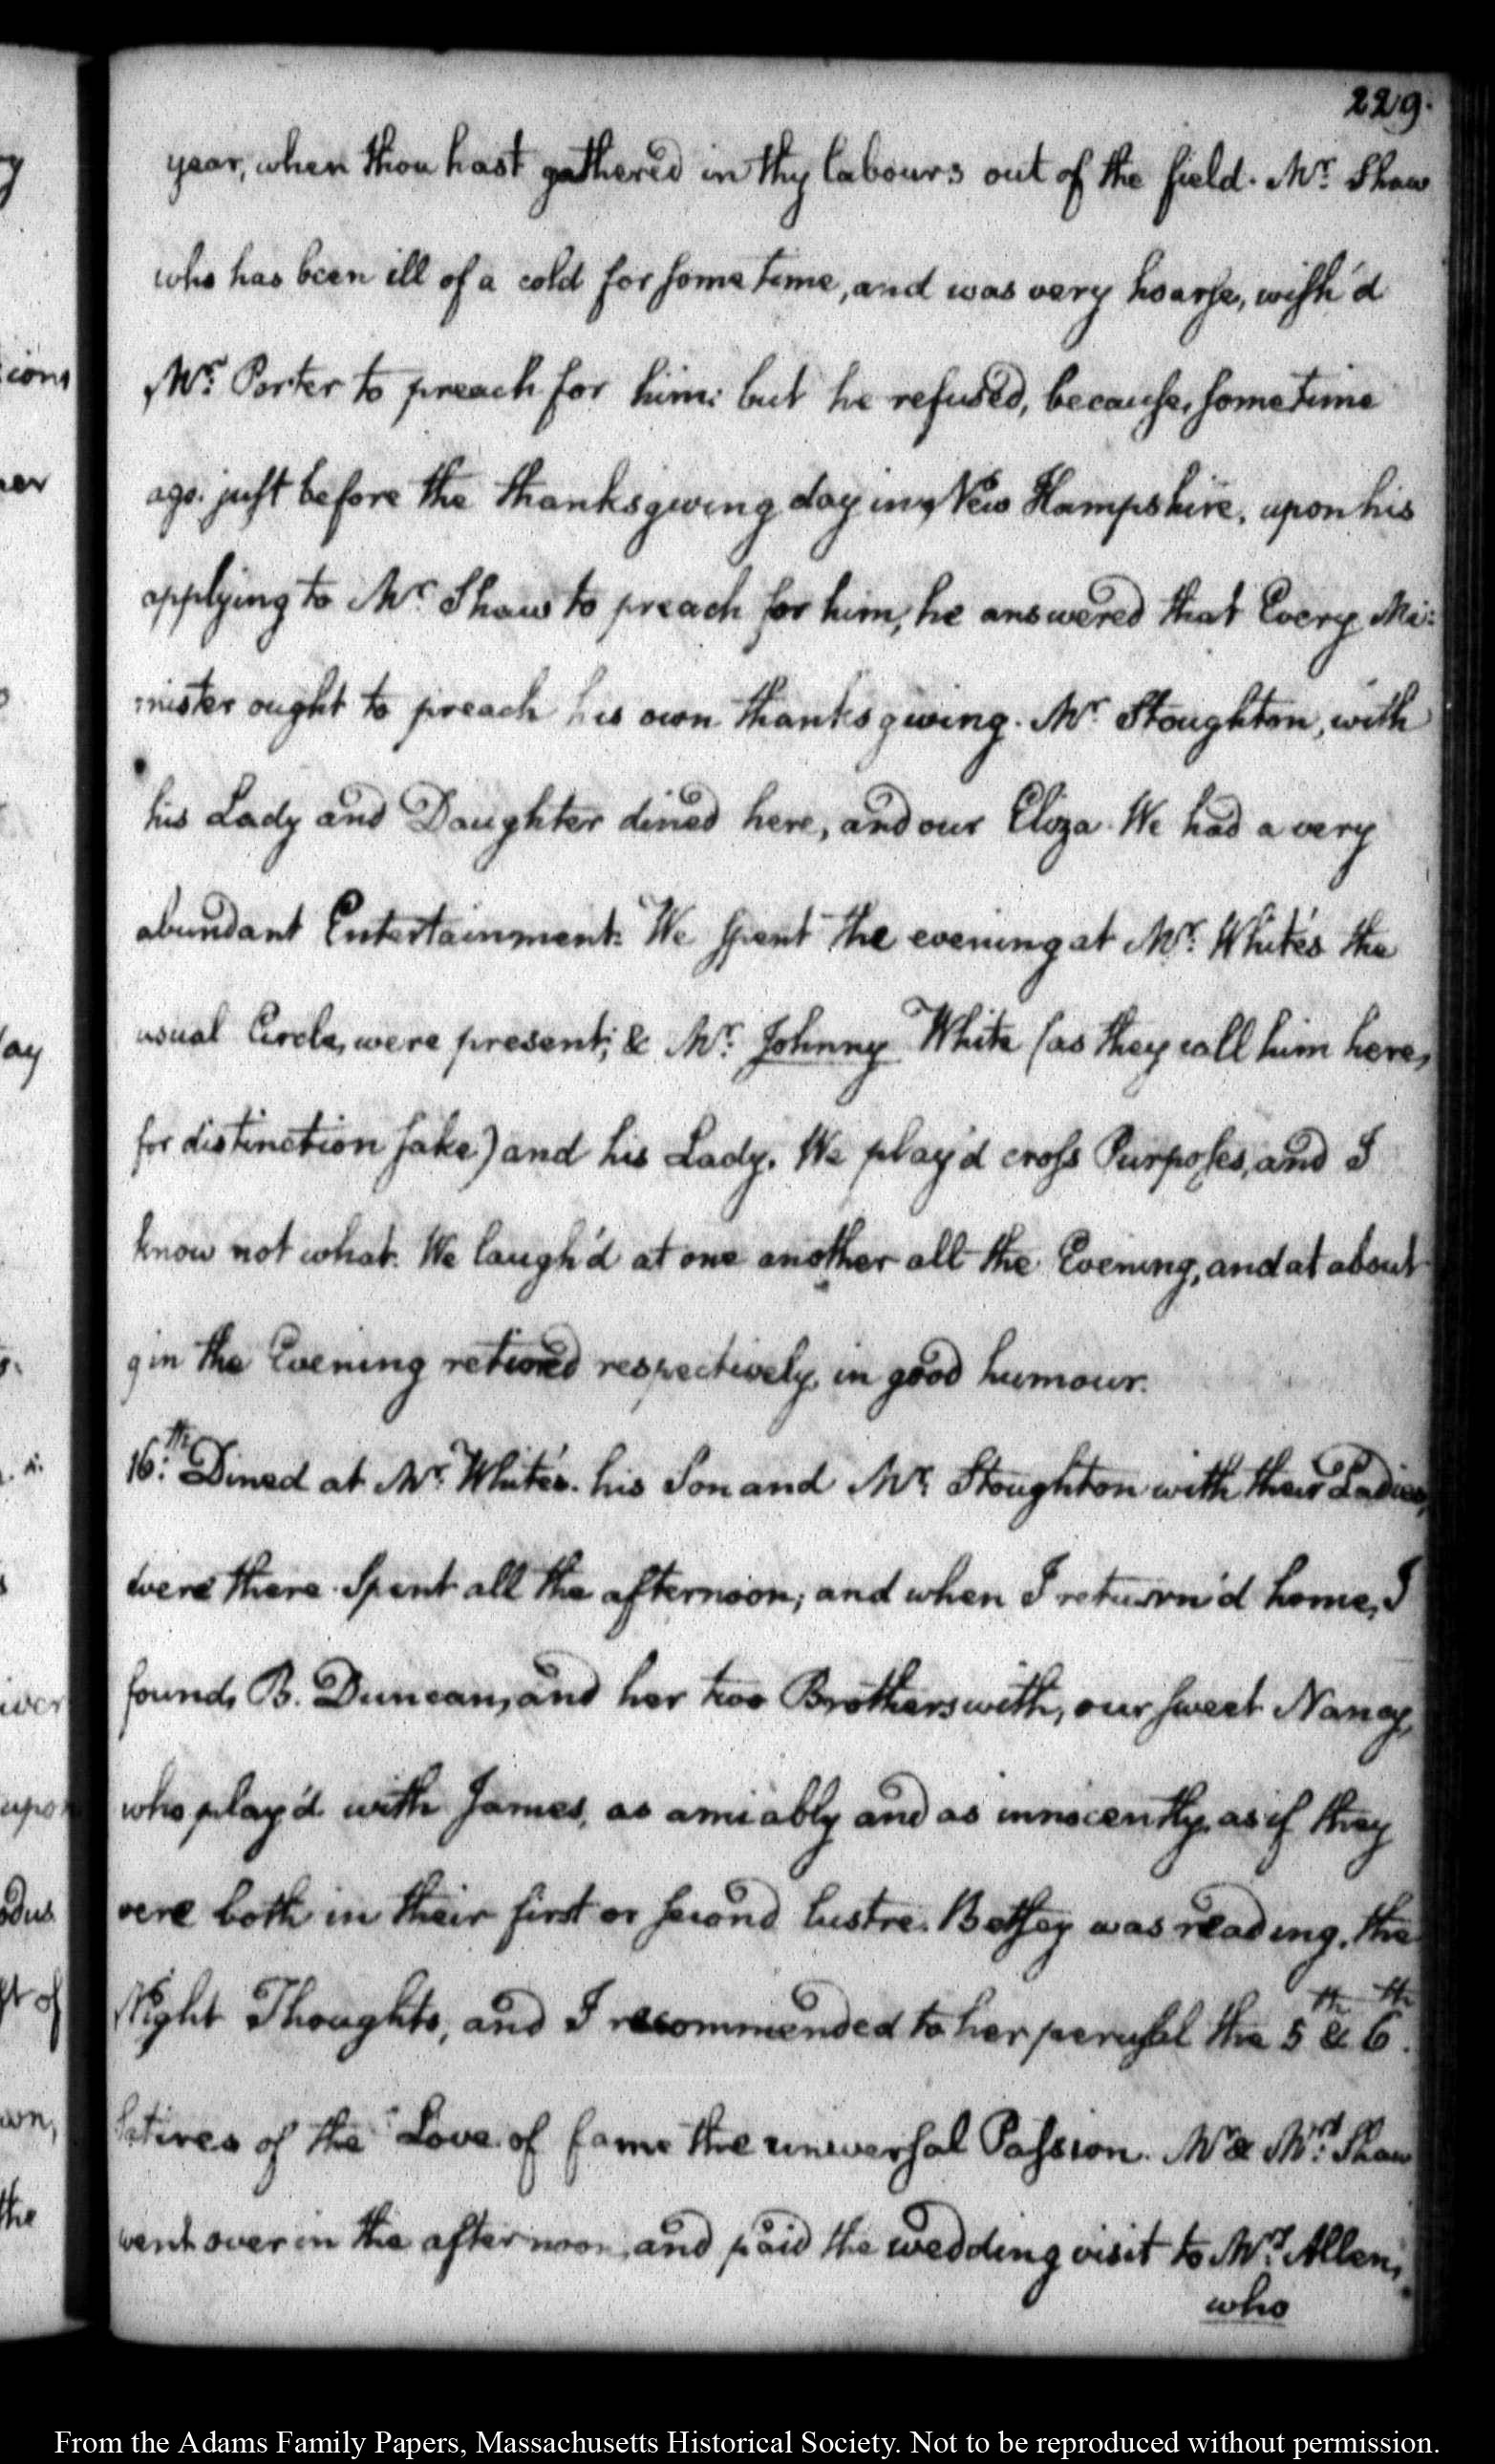 229.
year, when thou hast gathered in thy labours out of the field. Mr. Shaw
who has been ill of a cold for some time, and was very hoarse, wish'd
Mr. Porter to preach for him: but he refused, because, some time
ago. just before the thanksgiving day in, New Hampshire, upon his
applying to Mr. Shaw to preach for him, he answered that Every Mi:
nister ought to preach his own thanksgiving. Mr. Stoughton, with
his Lady and Daughter dined here, and our Eliza. We had a very
abundant Entertainment. We spent the evening at Mr. White's the
usual Circle, were present; & Mr. Johnny White (as they call him here,
for distinction sake) and his Lady. We play'd cross Purposes, and I
know not what. We laugh'd at one another all the Evening, and at about
9 in the Evening retired respectively, in good humour.
16:th Dined at Mr. White's. his Son and Mr. Stoughton with their Ladies,
were there. Spent all the afternoon; and when I return'd home, I
found, B. Duncan, and her two Brothers with, our sweet Nancy,
who play'd with James, as amiably and as innocently, as if they
were both in their first or second lustre. Betsey was reading, the
Night Thoughts, and I recommended to her perusal the 5th & 6th.
satires of the Love of fame the universal Passion. Mr. & Mrs. Shaw
went over in the afternoon, and paid the wedding visit to Mrs. Allen,
who
ry
ions
her
lay
s.
iver
upon
odus
st of
own,
the
From the Adams Family Papers, Massachusetts Historical Society. Not to be reproduced without permission.